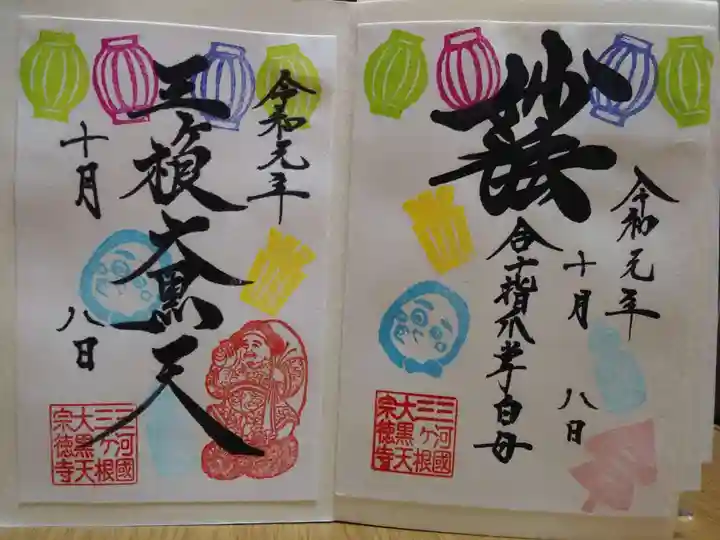 令和元年
十月 八日
妙法
合十指爪掌白母
三河國
三ヶ根
大黒天
宗徳寺
令和元年
三ヶ根大黒天
十月 八日
三河國
三ヶ根
大黒天
宗徳寺